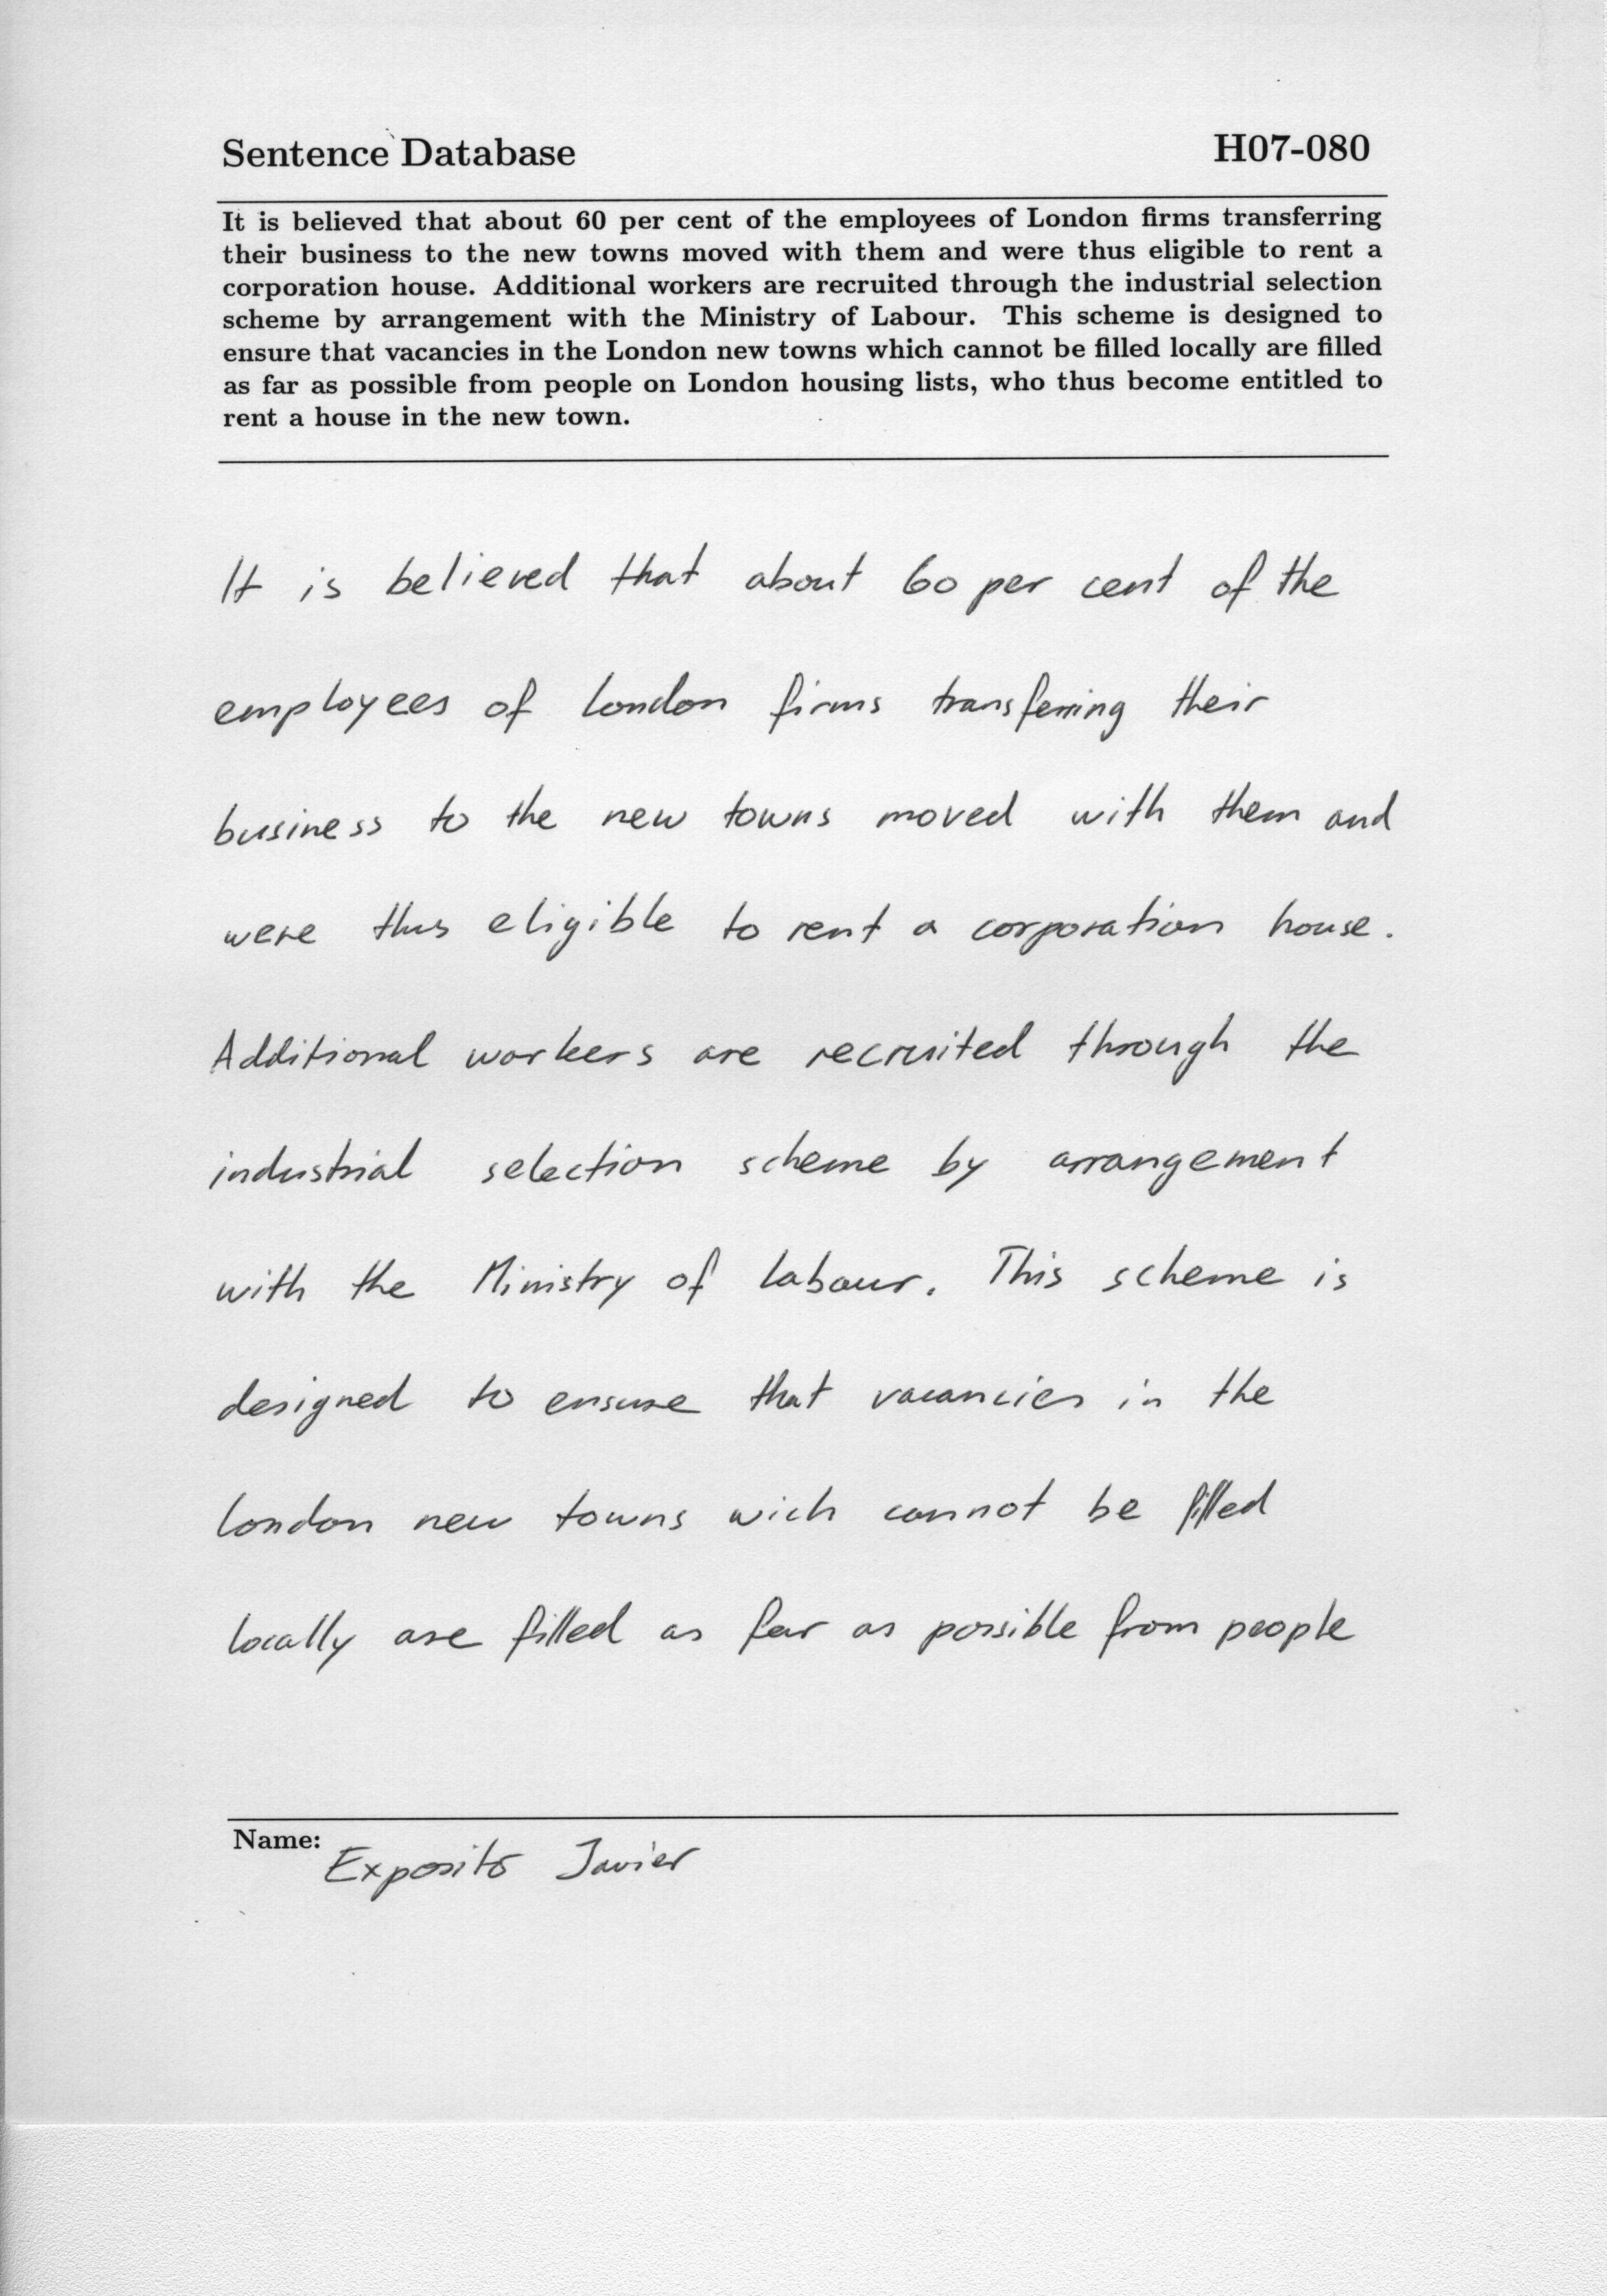 Sentence Database
H07-080
It is believed that about 60 per cent of the employees of London firms transferring
their business to the new towns moved with them and were thus eligible to rent a
corporation house. Additional workers are recruited through the industrial selection
scheme by arrangement with the Ministry of Labour. This scheme is designed to
ensure that vacancies in the London new towns which cannot be filled locally are filled
as far as possible from people on London housing lists, who thus become entitled to
rent a house in the new town.
It is believed that about 60 per cent of the
employees of London firms transferring their
business to the new towns moved with them and
were thus eligible to rent a corporation house.
Additional workers are recruited through the
industrial selection scheme by arrangement
with the Ministry of Labour. This scheme is
designed to ensure that vacancies in the
London new towns wich cannot be filled
locally are filled as far as possible from people
Name:
Exposito Javier